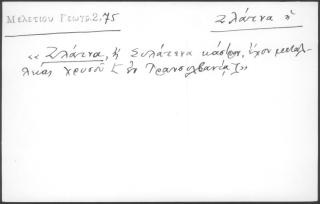 Μελετίου Γεωγρ.2,75
Ζλάτνα ἡ
«Ζλάτνα, ἢ Συλάτενα κάστρον, ἔχον μεταλ-
λεῖα χρυσοῦ ἐν Τρανσυλβανίᾳ»